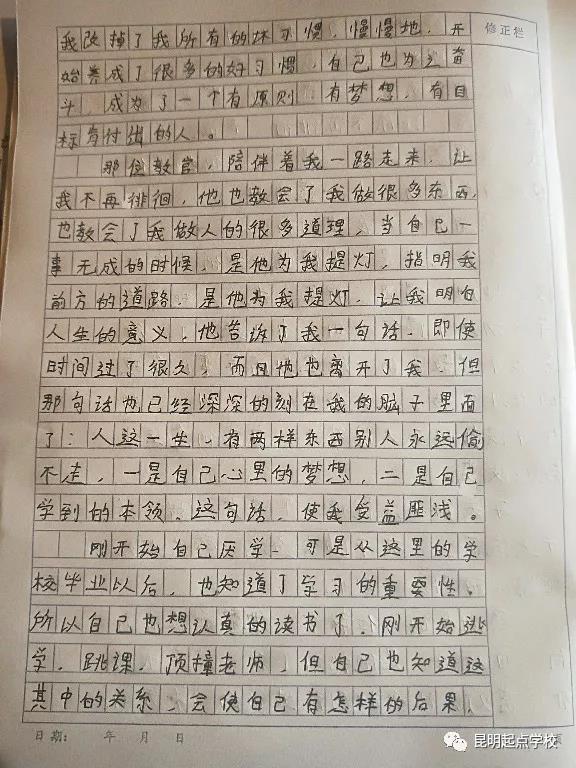 修正栏
我改掉了我所有的坏习惯，慢慢地，开
始养成了很多的好习惯，自己也为之奋
斗，成为了一个有原则，有梦想，有目
标有付出的人。
那位教官，陪伴着我一路走来，让
我不再徘徊，他也教会了我做很多东西，
也教会了我做人的很多道理，当自己一
事无成的时候，是他为我提灯，指明我
前方的道路，是他为我提灯，让我明白
人生的意义，他告诉了我一句话，即使
时间过了很久，而且他也离开了我，但
那句话也已经深深的刻在我的脑子里面
了：人这一生，有两样东西别人永远偷
不走，一是自己心里的梦想，二是自己
学到的本领，这句话，使我受益匪浅。
刚开始自己厌学，可是从这里的学
校毕业以后，也知道了学习的重要性。
所以自己也想认真的读书了，刚开始逃
学，跳课，顶撞老师，但自己也知道这
其中的关系，会使自己有怎样的后果，
日期： 年 月 日
昆明起点学校